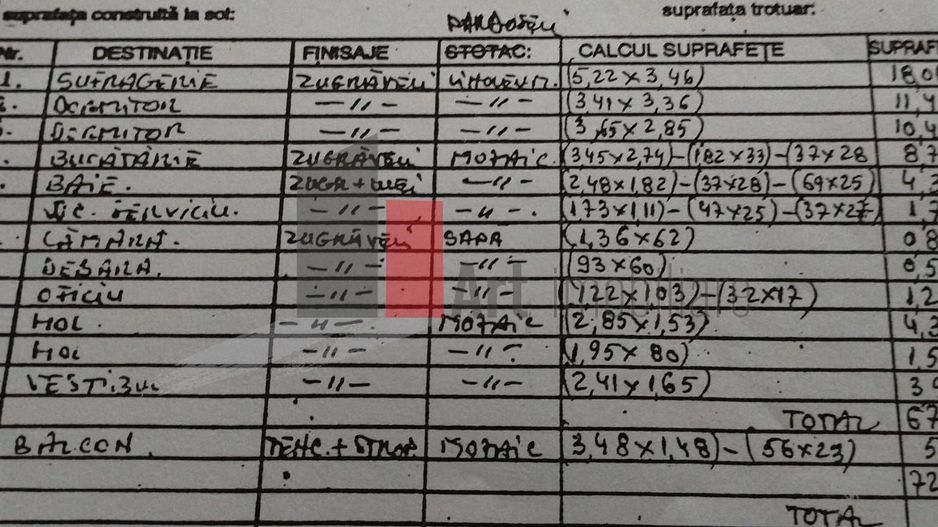 suprafața construită la sol: suprafața trotuar:
PARDOSELI
Nr. DESTINAȚIE FINISAJE STOTAC: CALCUL SUPRAFEȚE SUPRAF
1. SUFRAGERIE ZUGRĂVELI LINOLEUM. (5,22 x 3,46) 18,0
DORMITOR —//— —//— (3,41 x 3,36) 11,4
DORMITOR —//— —//— (3,65 x 2,85) 10,4
BUCĂTĂRIE ZUGRĂVELI MOZAIC. (3,45 x 2,74) – (1,82 x 33) – (37 x 28 8,7
BAIE. ZUGR + ULEI —//— (2,48 x 1,82) – (37 x 28) – (69 x 25) 4,3
W.C. SERVICIU. —//— —//— . (1,73 x 1,11) – (47 x 25) – (37 x 27) 1,7
CĂMARA. ZUGRĂVELI SAPA (1,36 x 62) 0,8
DEBARA. —//— —//— (93 x 60) 0,5
OFICIU —//— —//— (1,22 x 1,03) – (32 x 17) 1,2
HOL. —//—. MOZAIC (2,85 x 1,53) 4,3
HOL —//— —//— (1,95 x 80) 1,5
VESTIBUL —//— —//— (2,41 x 1,65) 3,9
TOTAL 67
BALCON. MOZAIC (3,48 x 1,48) – (56 x 23) 5
72
TOTAL